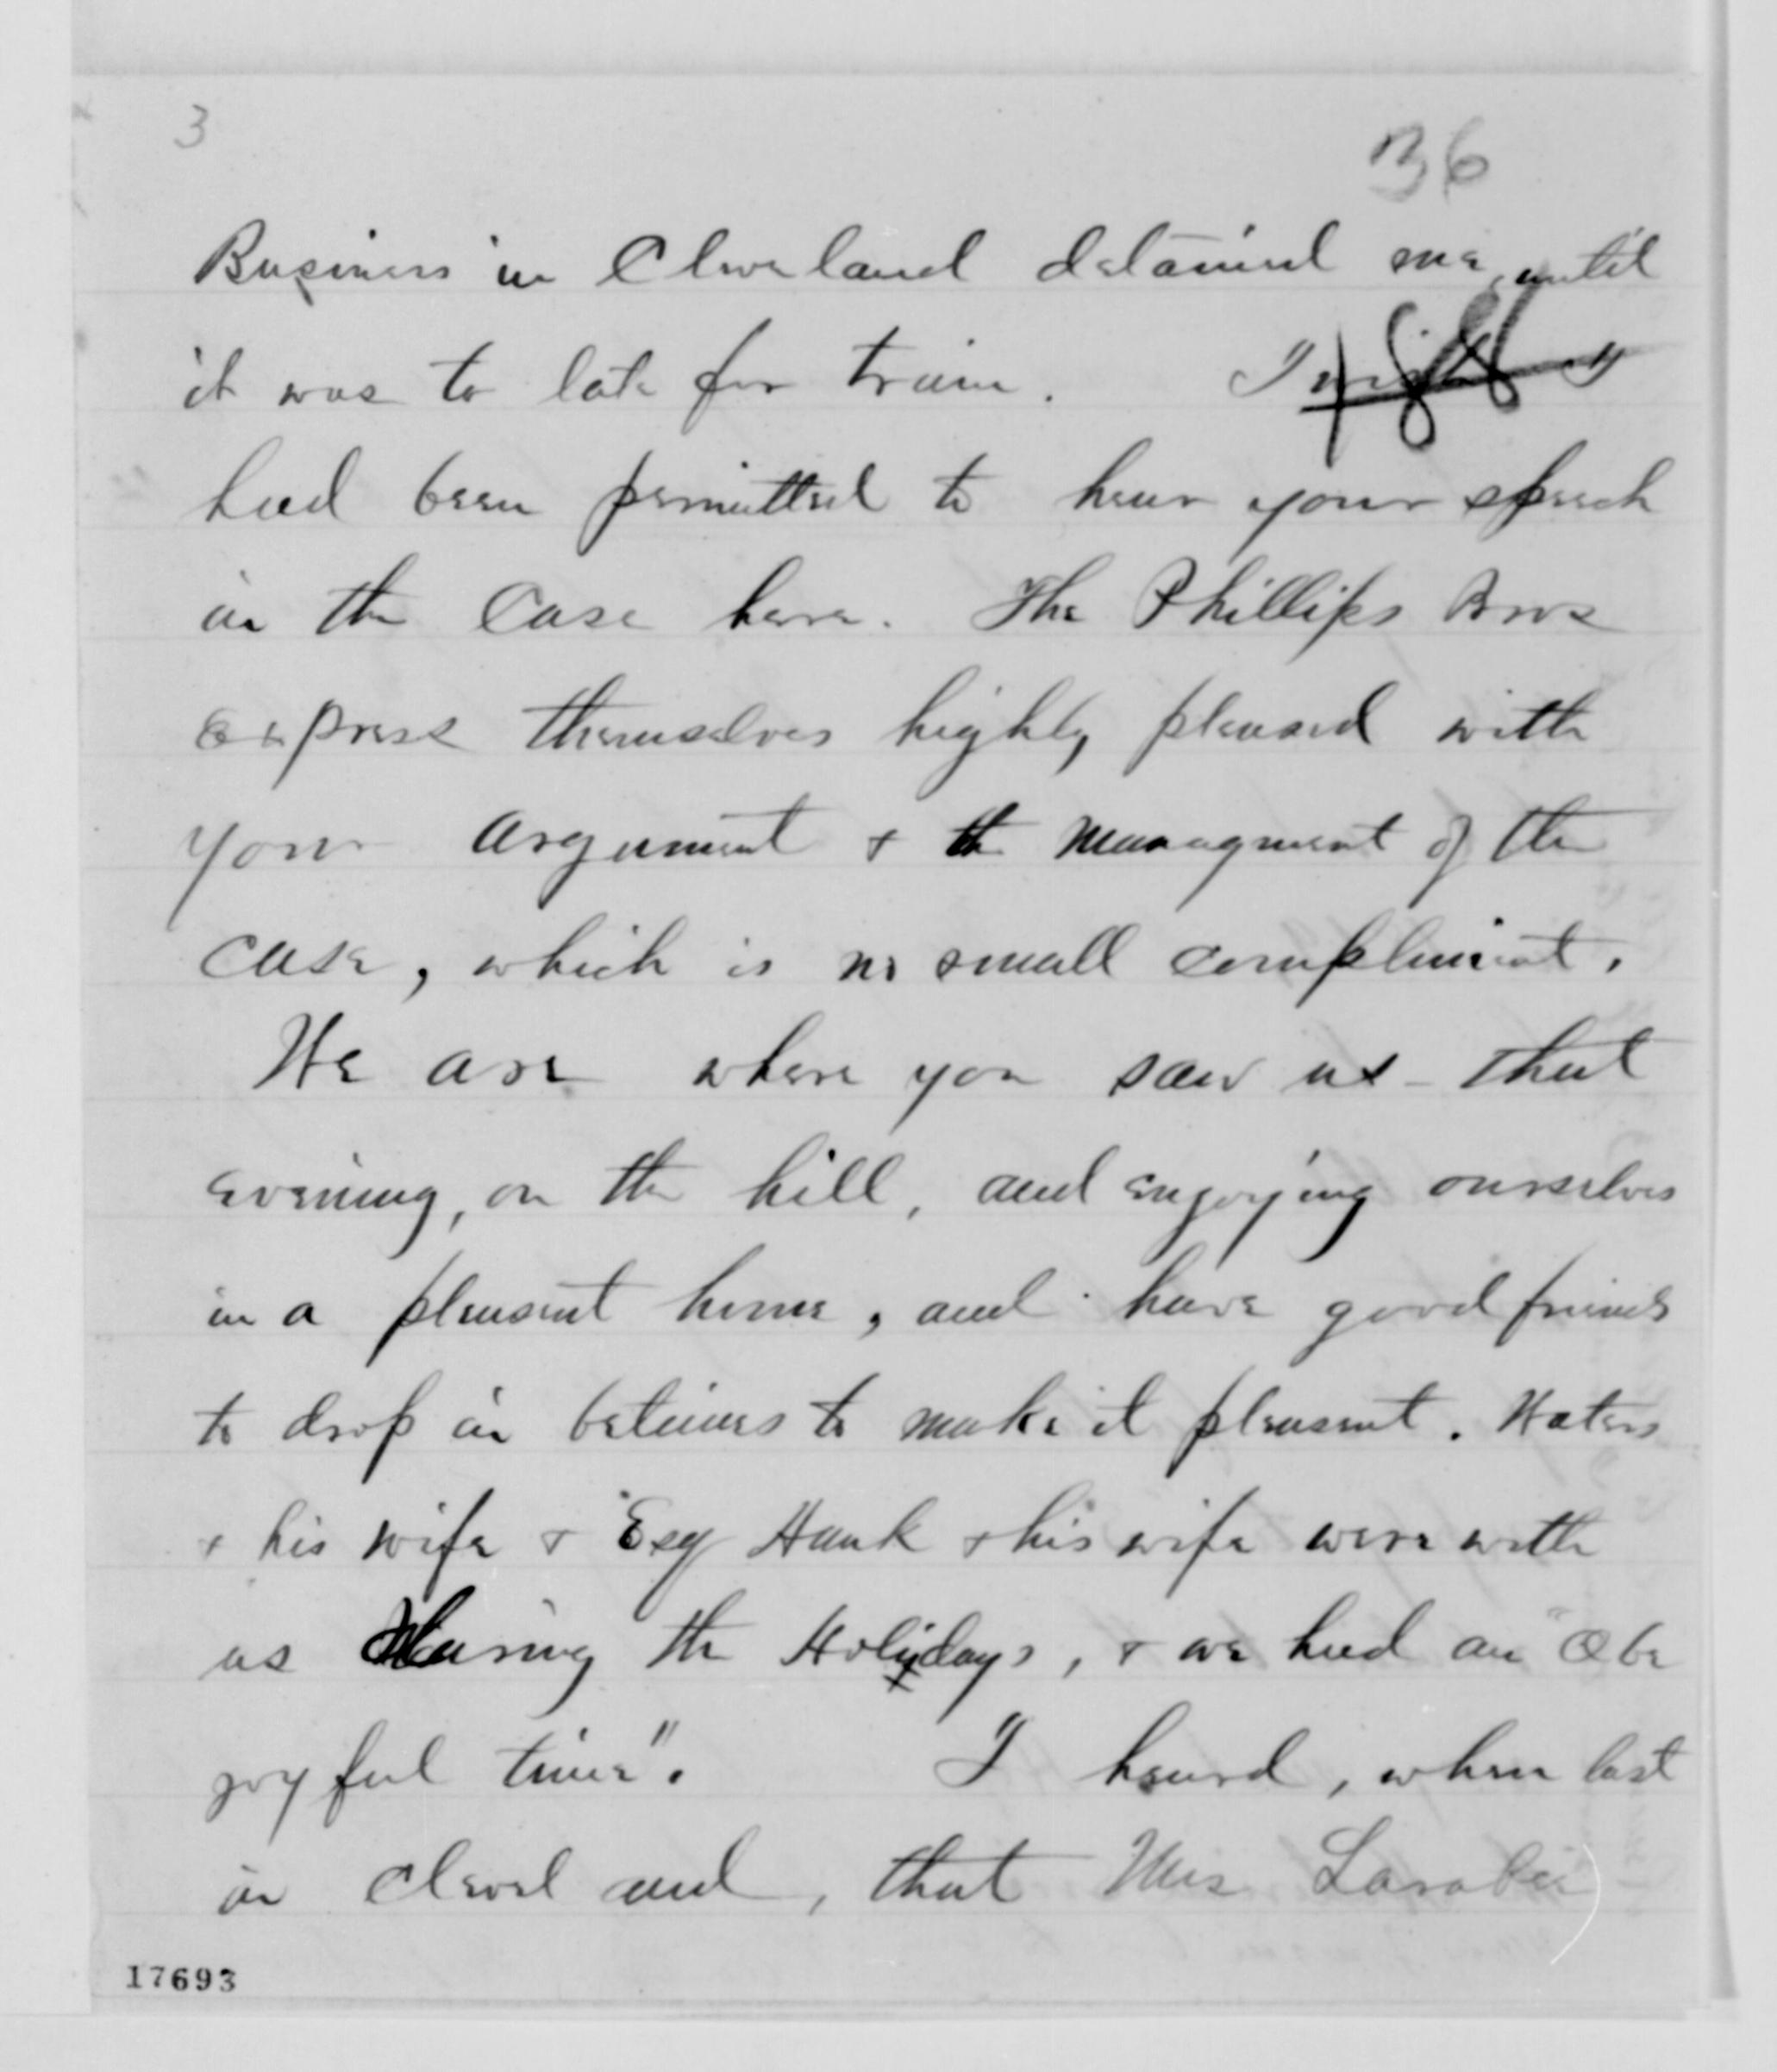 3
36
Business in Cleveland detained me until
it was to late for train. I I
had been permitted to hear your speech
in the Case here. The Phillips Bros
express themselves highly pleased with
your argument & the managment of the
case, which is no small compliment.
We are where you saw us that
evening, on the hill, and enjoying ourselves
in a pleasant home, and have good friends
to drop in betimes to make it pleasant. Waters
& his wife & Esq Hank & his wife were with
us During the Holydays, & we had an "O be
joyful time". I heard, when last
in Cleveland, that Mrs
17693